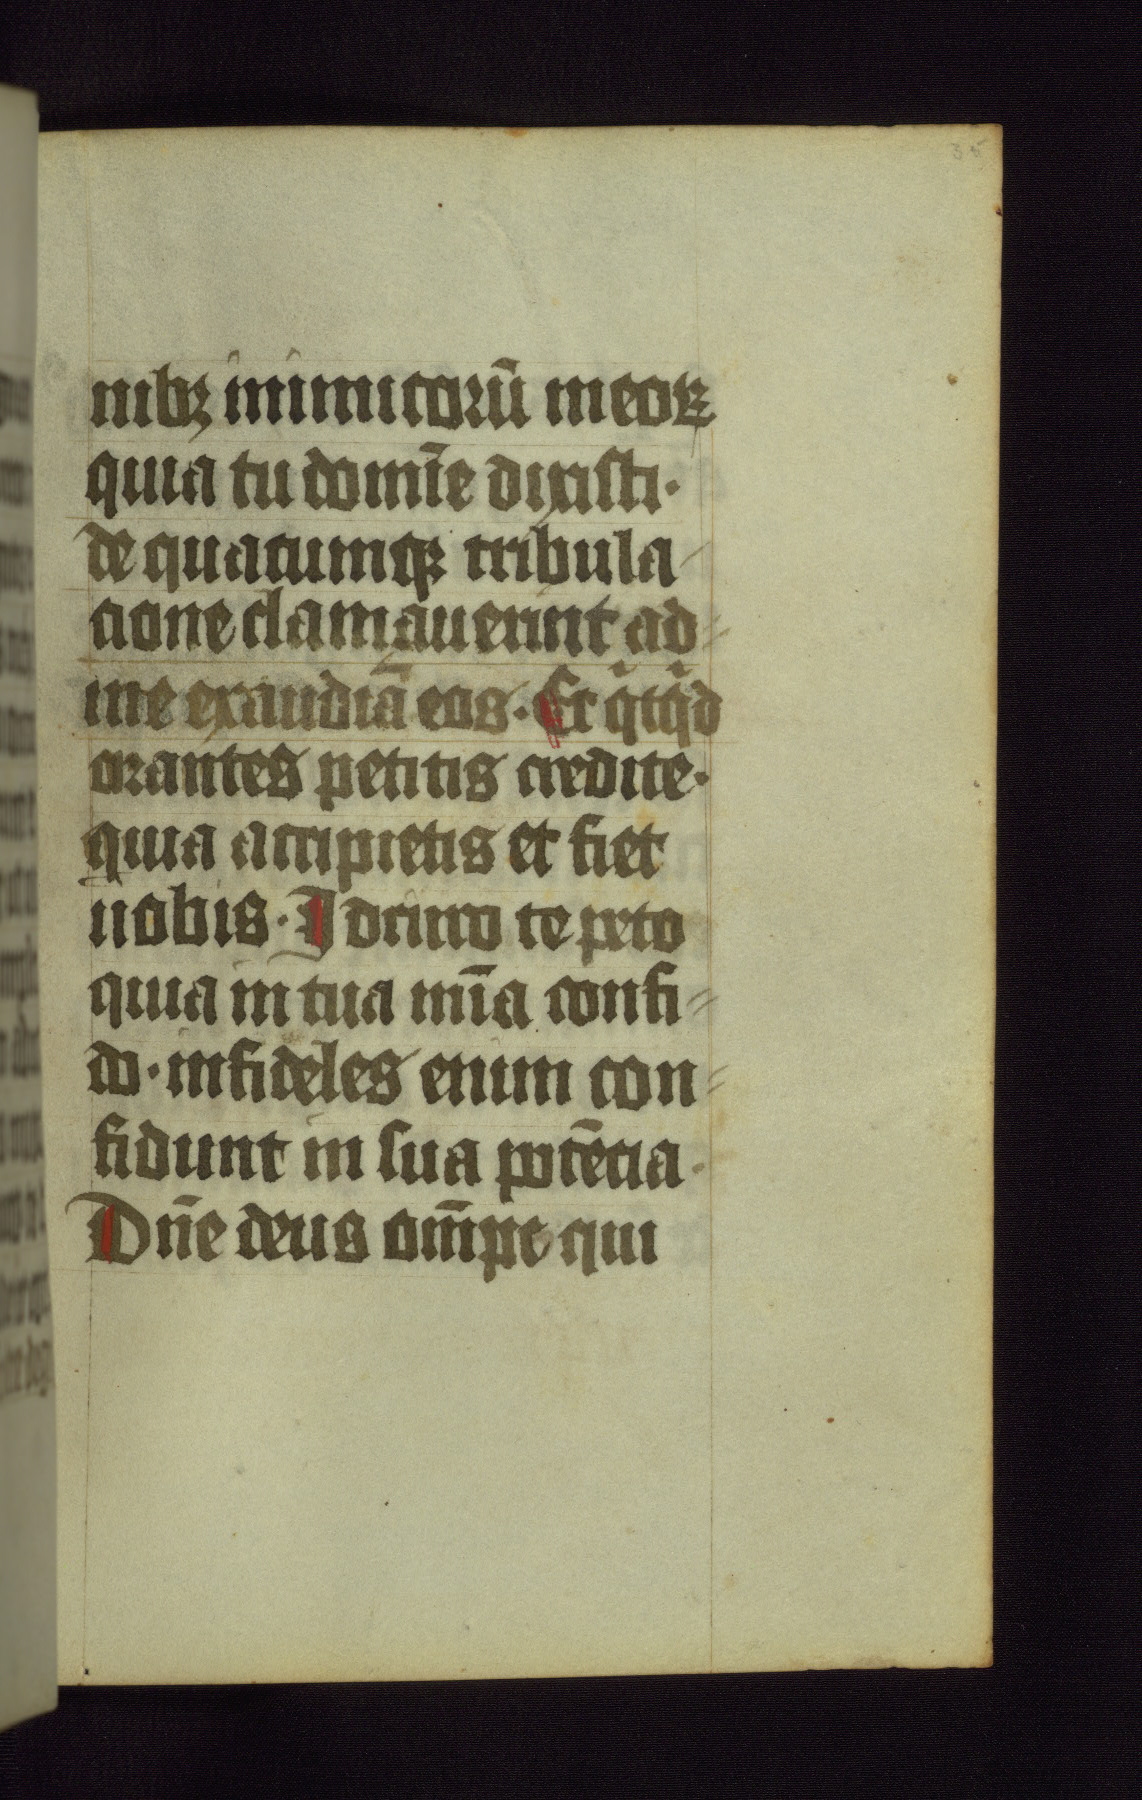 35
nibꝫ inimicorū meoꝝ
quia tu domīe dixisti·
de quacumqꝫ tribula
cione clamauerint ad
me exaudiā eos· Et qͥtqͥd
orantes petitis credite·
quia accipietis et fiet
uobis· Idcirco te peto
quia in tua mīa confi
do· infideles enim con
fidunt in sua potēcia·
Dn̄e deus om̄pc qui